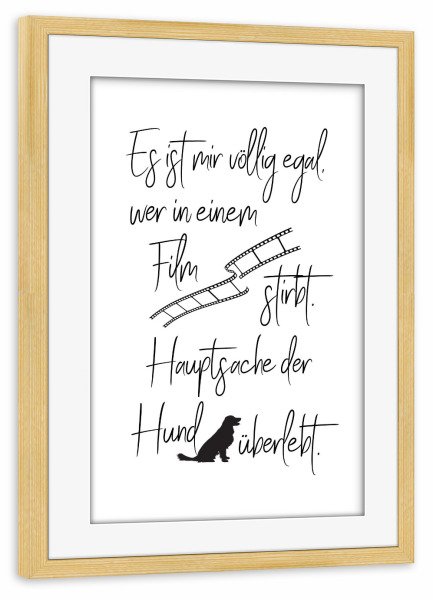 Es ist mir völlig egal,
wer in einem
Film
stirbt.
Hauptsache der
Hund überlebt.